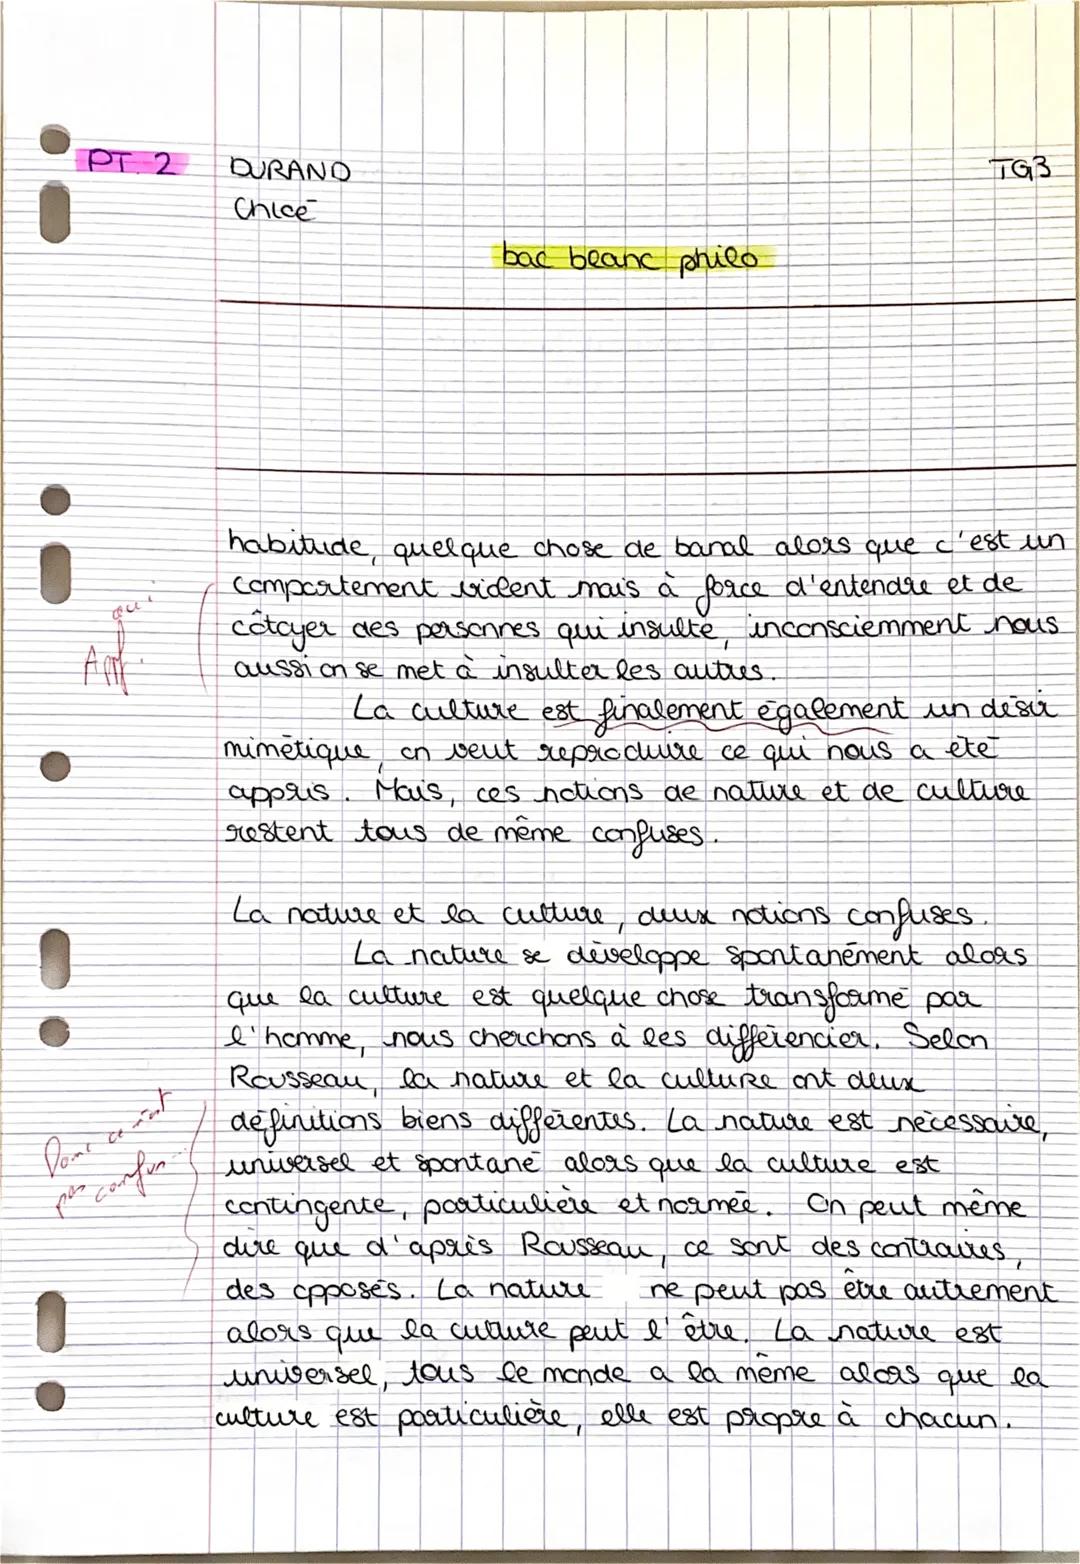 PT. 2 DURAND TG3
Chloé
bac blanc philo
habitude, quelque chose de banal alors que c'est un
comportement vident mais à force d'entendre et de
oui
côtoyer des personnes qui insulte, inconsciemment nous
aussi on se met à insulter les autres.
La culture est finalement également un désir
mimétique, on veut reproduire ce qui nous a été
appris. Mais, ces notions de nature et de culture
restent tous de même confuses.
La nature et la culture, deux notions confuses.
La nature se développe spontanément alors
que la culture est quelque chose transformé par
l'homme, nous cherchons à les différencier. Selon
Rousseau, la nature et la culture ont deux
définitions biens différentes. La nature est nécessaire,
Donc ce n'est
pas confus...
universel et spontané alors que la culture est
contingente, particulière et normée. On peut même
dire que d'après Rousseau, ce sont des contraires,
des opposés. La nature ne peut pas être autrement
alors que la culture peut l'être. La nature est
universel, tous le monde a la même alors que la
culture est particulière, elle est propre à chacun.